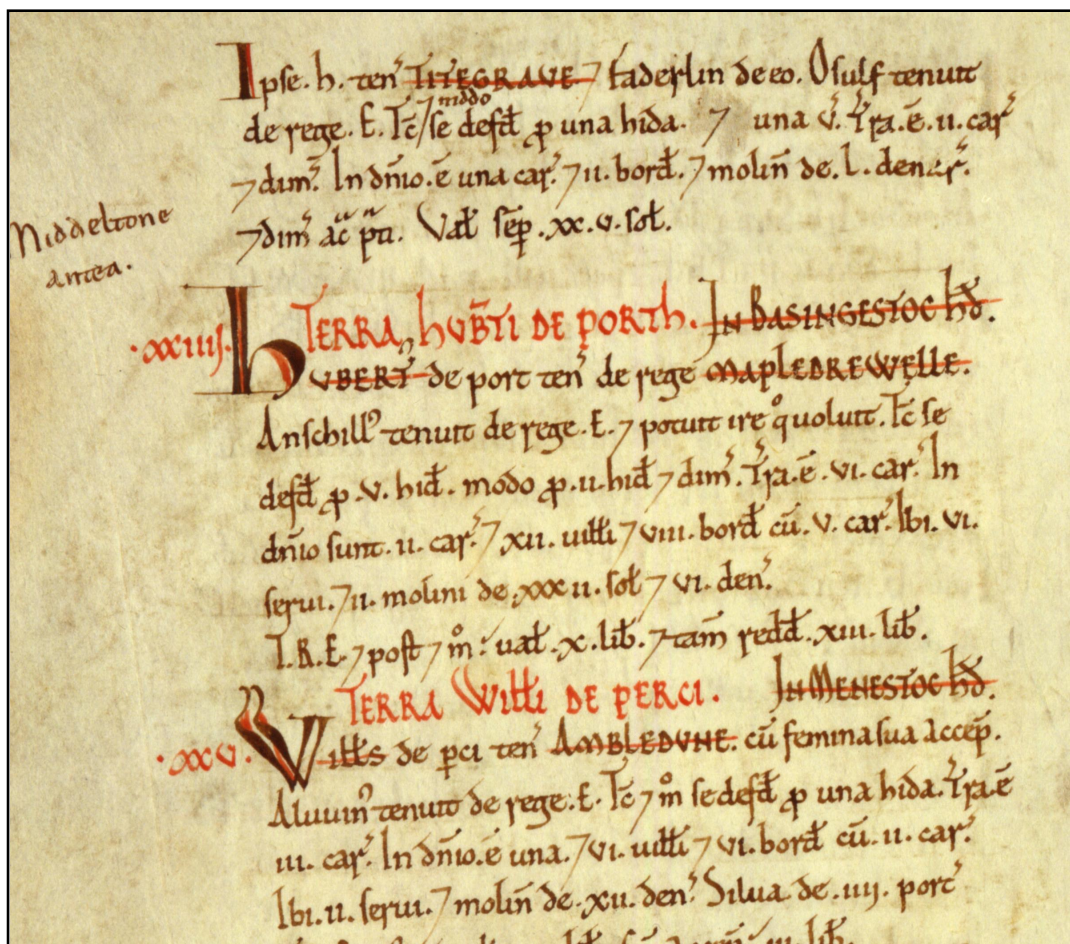 Ipse. h. ten̄ TITEGRAVE ⁊ Faderlin de eo. Osulf tenuit
de rege. E. Tc̄ ⁊ modo se defd̄ ꝓ una hida. ⁊ una v̄. Tr̄a. ē. ii. car̄
⁊ dim̄. In dn̄io. ē una car̄. ⁊ ii. bord̄. ⁊ molin̄ de. l. denar̄.
⁊ dim̄ ac̄ p̄ti. Val̄ sēp. xx. v. sol̄.
Middeltone
antea.
.xxiiij. TERRA HUB̄TI DE PORTH. IN BASINGESTOC hd̄.
HUBERT̄ de port ten̄ de rege MAPLEDREWELLE.
Anschill⁹ tenuit de rege. E. ⁊ potuit ire q°uoluit. Tc̄ se
defd̄ ꝓ. v. hid̄. modo ꝓ. ii. hid̄ ⁊ dim̄. Tr̄a. ē. vi. car̄. In
dn̄io sunt. ii. car̄. ⁊ xii. uilłi ⁊ viii. bord̄ cū. v. car̄. Ibi. vi.
serui. ⁊ ii. molini de. xxx ii. sol̄ ⁊ vi. den̄.
T.R.E. ⁊ post ⁊ m̊. ual̄. x. lib̄. ⁊ tam̄ redd̄. xiii. lib̄.
TERRA Wilłi DE PERCI. IN MENESTOC hd̄.
.xxv. Wilłs de p̄ci ten̄ AMBLEDUNE. cū femina sua accep̄.
Aluuin⁹ tenuit de rege. E. Tc̄ ⁊ m̊ se defd̄ ꝓ una hida. Tr̄a ē
iii. car̄. In dn̄io. ē una. ⁊ vi. uilłi ⁊ vi. bord̄ cū. ii. car̄.
Ibi. ii. serui. ⁊ molin̄ de. xii. den̄. Silua de. iiij. porc̄